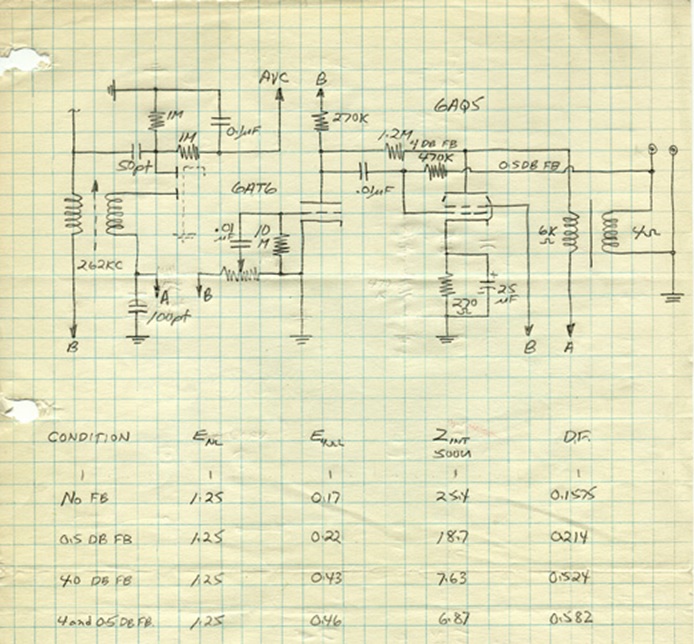 AVC B
6AQ5
1M
0.1µF
270K
1M
1.2M 4 DB FB
50pf
470K
0.5 DB FB
.01µF
6AT6
.01 µF
10 M
6K Ω
4Ω
262KC
A
B
100pf
270 Ω
25 µF
B
B
A
CONDITION ENL E4ΩL ZINT 500N D.F.
No FB 1.25 0.17 25.4 0.1575
0.5 DB FB 1.25 0.22 18.7 0.214
4.0 DB FB 1.25 0.43 7.63 0.524
4 and 0.5 DB FB. 1.25 0.46 6.87 0.582